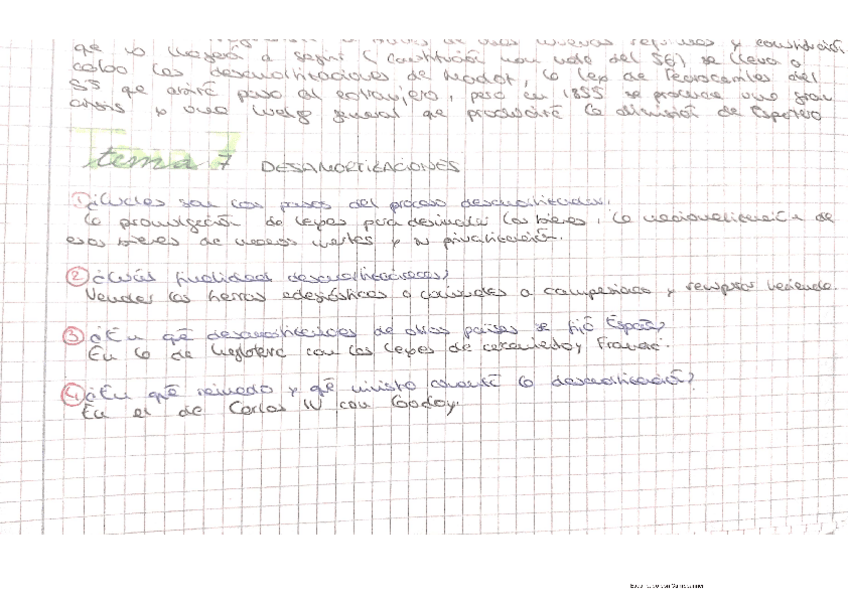 que no llegará a seguir (constitución non nata del 56) se lleva a
cabo las desamortizaciones de Madoz, la ley de Ferrocarriles del
55 que abriré paso al extranjero, pero en 1855 se produce una gran
crisis y una huelga general que producirá la dimisión de Espartero
tema 7 DESAMORTIZACIONES
① ¿Cuáles son los pasos del proceso desamortizador.
La promulgación de leyes para desvincular los bienes, la nacionalización de
esos bienes de manos muertas y su privatización.
② ¿Cuál finalidad desamortizaciones?
Vender las tierras eclesiásticas o comunales a campesinado y
③ ¿En qué desamortizaciones de otros países se fijó España?
En la de Inglaterra con las leyes de cercamiento y Francia.
④ ¿En qué reinado y qué ministro comenzó la desamortización?
En el de Carlos IV con Godoy.